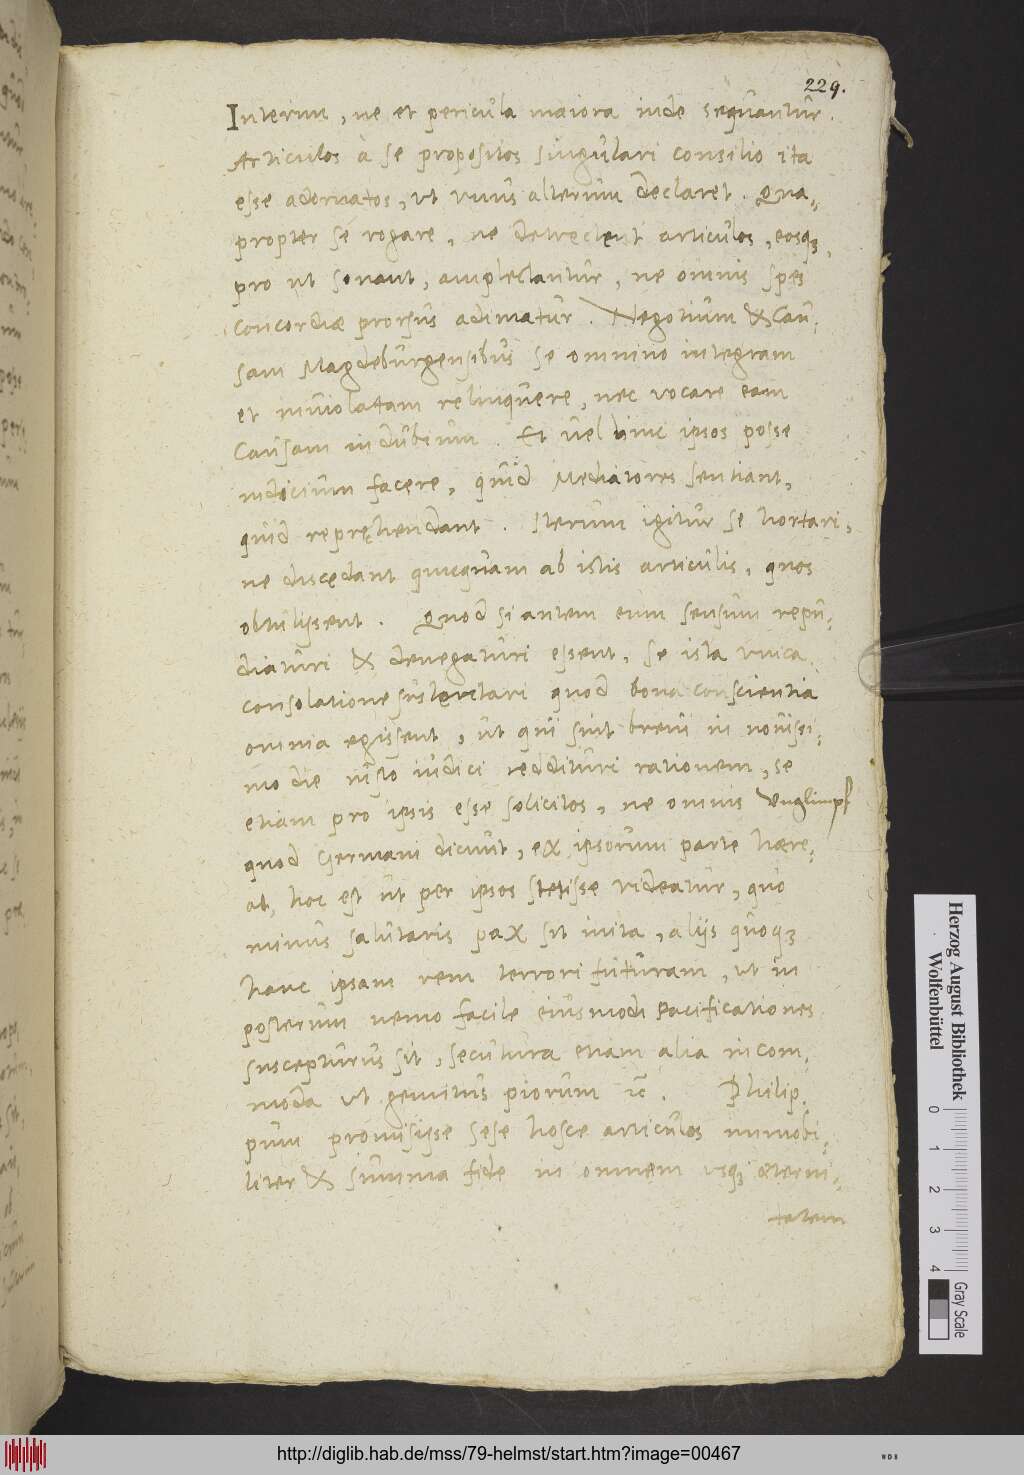 229.
Interim, ne et pericula maiora inde sequantur.
Articulos à se propositos singulari consilio ita
esse adornatos, ut unus alterum declaret. Qua-
propter se rogare, ne detrectent articulos, eosq3,
pro ut sonant, amplectantur, ne omnis spes
concordiæ prorsus adimatur. Negotium & Cau-
sam Magdeburgensibus se omnino integram
et inviolatam relinquere, nec vocare eam
Causam in dubium. Et uel hinc ipsos posse
indicium facere, quid Mediatores sentiant,
quid reprehendant. Iterum igitur se hortari,
ne discedant quicquam ab istis articulis, quos
obtulissent. Quod si autem eum sensum repu-
diaturi & denegaturi essent, se ista unica
consolatione sustentari quod bona conscientia
omnia egissent, ut qui sint breui in nouissi-
mo die iusto iudici reddituri rationem, se
etiam pro ipsis esse solicitos, ne omnis Unglimpf
quod Germani dicunt, ex ipsorum parte hære-
at, hoc est ut per ipsos stetisse uideatur, quo
minus salutaris pax sit inita, alijs quoq3
hanc ipsam rem terrori futuram, ut in
posterum nemo facile eiusmodi pacificationes
suscepturus sit, secutura etiam alia incom-
moda ut gemitus piorum &c. Philip-
pum promisisse sese hosce articulos immobi-
liter & summa fide in omnem usq3 æterni-
tatem
Herzog August Bibliothek
Wolfenbüttel
0 1 2 3 4
Gray Scale
http://diglib.hab.de/mss/79-helmst/start.htm?image=00467